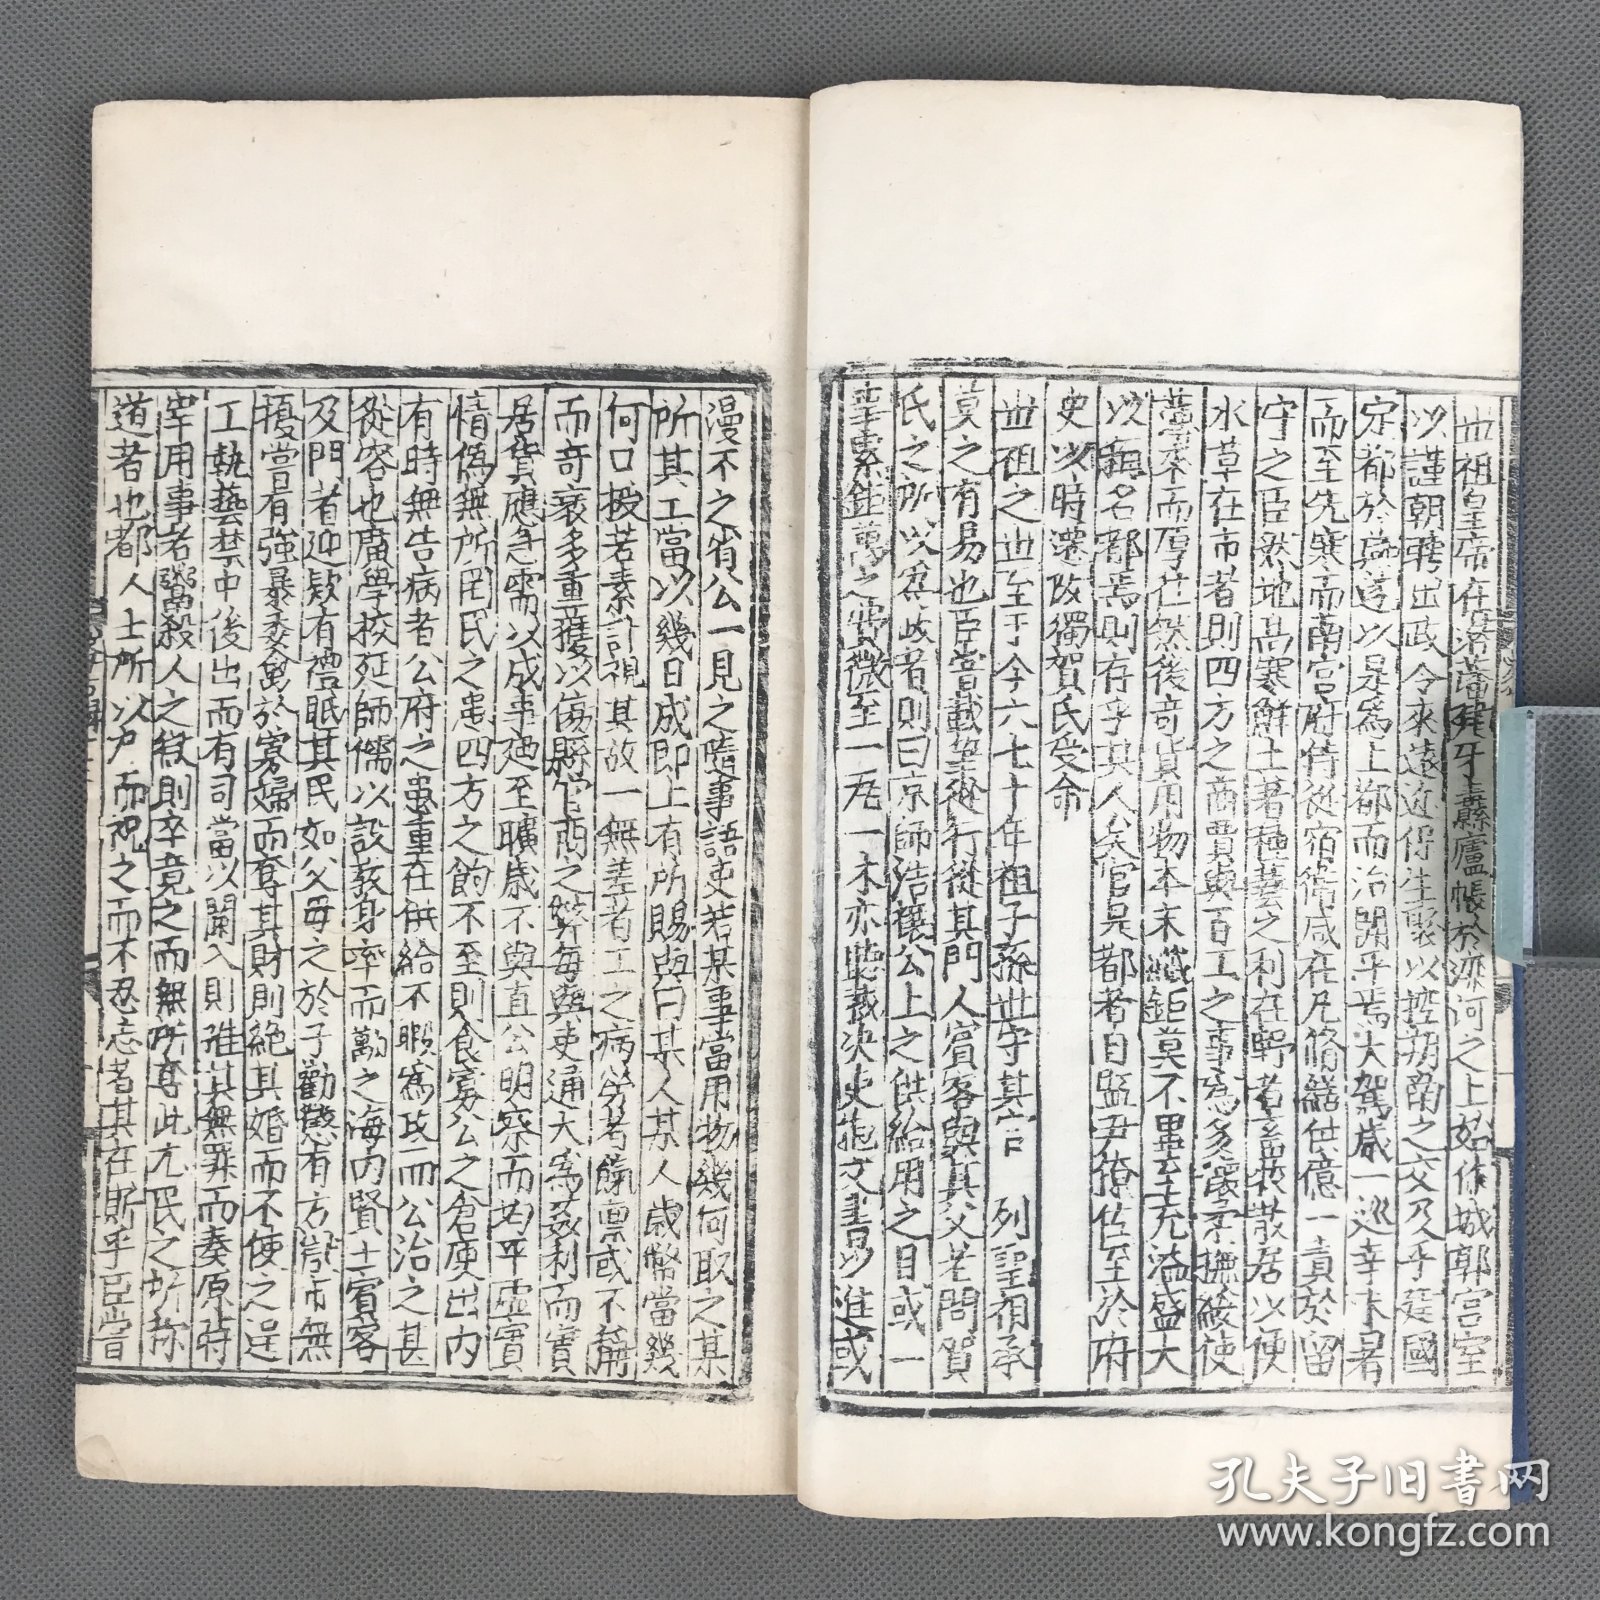 世祖皇帝在潛藩建牙纛廬帳於灤河之上始作城郭宮室
以謹朝聘出政令來遠近保生聚以控朔南之交及乎建國
定都於燕遂以是為上都而治開平焉大駕歲一巡幸未暑
而至先寒而南宮府侍從宿衛咸在凡脩繕供億一責於留
守之臣然地高寒鮮土著種藝之利在野者畜牧散居以便
水草在市者則四方之商賈與百工之事為多懷柔撫綏使
薰來而厚往然後奇貨用物本末纖鉅莫不畢至充溢盛大
以稱名都焉則存乎其人矣官是都者自監尹僚佐至於府
史以時遷改獨賀氏受命
世祖之世至于今六七十年祖子孫世守其官 列聖相承
莫之有易也臣嘗載筆從行從其門人賓客與其父老問賀
氏之所以為此者則曰京師浩穰公上之供給用之目或一
事累鉅萬之費微至一瓦一木亦聽裁決吏抱文書以進或
漫不之省公一見之隨事語吏若某事當用物幾何取之某
所其工當以幾日成即上有所賜與曰某人某人歲幣當幾
何口授若素計視其故一無差者工之病勞者餼稟或不繼
而奇衺多重獲以傷縣官商之弊每與吏通大為姦利而實
居貨應急需以成事迺至曠歲不與直公明察而均平虛實
情偽無所罔民之患四方之餉不至則食寡公之倉庾出內
有時無告病者公府之患重在供給不暇為政而公治之甚
從容也廣學校延師儒以設教身率而勸之海內賢士賓客
及門者迎款有禮眂其民如父母之於子勸懲有方獄市無
擾嘗有強暴委禽於寡婦而奪其財則絕其婚而不使之逞
工執藝禁中後出而有司當以闌入則推其無罪而奏原時
宰用事者鬻殺人之獄則卒竟之而無所奪此尤民之所稱
道者也都人士所以尸而祝之而不忍忘者其在斯乎臣嘗
孔夫子旧书网
www.kongfz.com